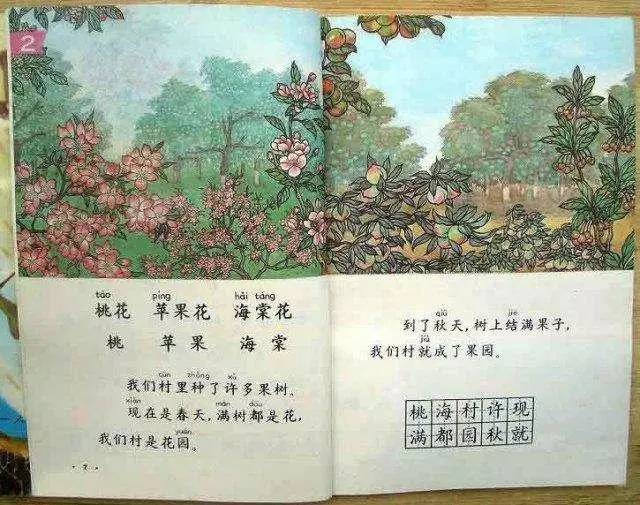 2
táo píng hǎi táng
桃花 苹果花 海棠花
桃 苹果 海棠
cūn zhòng xǔ
我们村里种了许多果树。
xiàn mǎn dōu
现在是春天,满树都是花,
yuán
我们村是花园。
·2·
qiū jiē
到了秋天,树上结满果子,
jiù
我们村就成了果园。
桃海村许现
满都园秋就